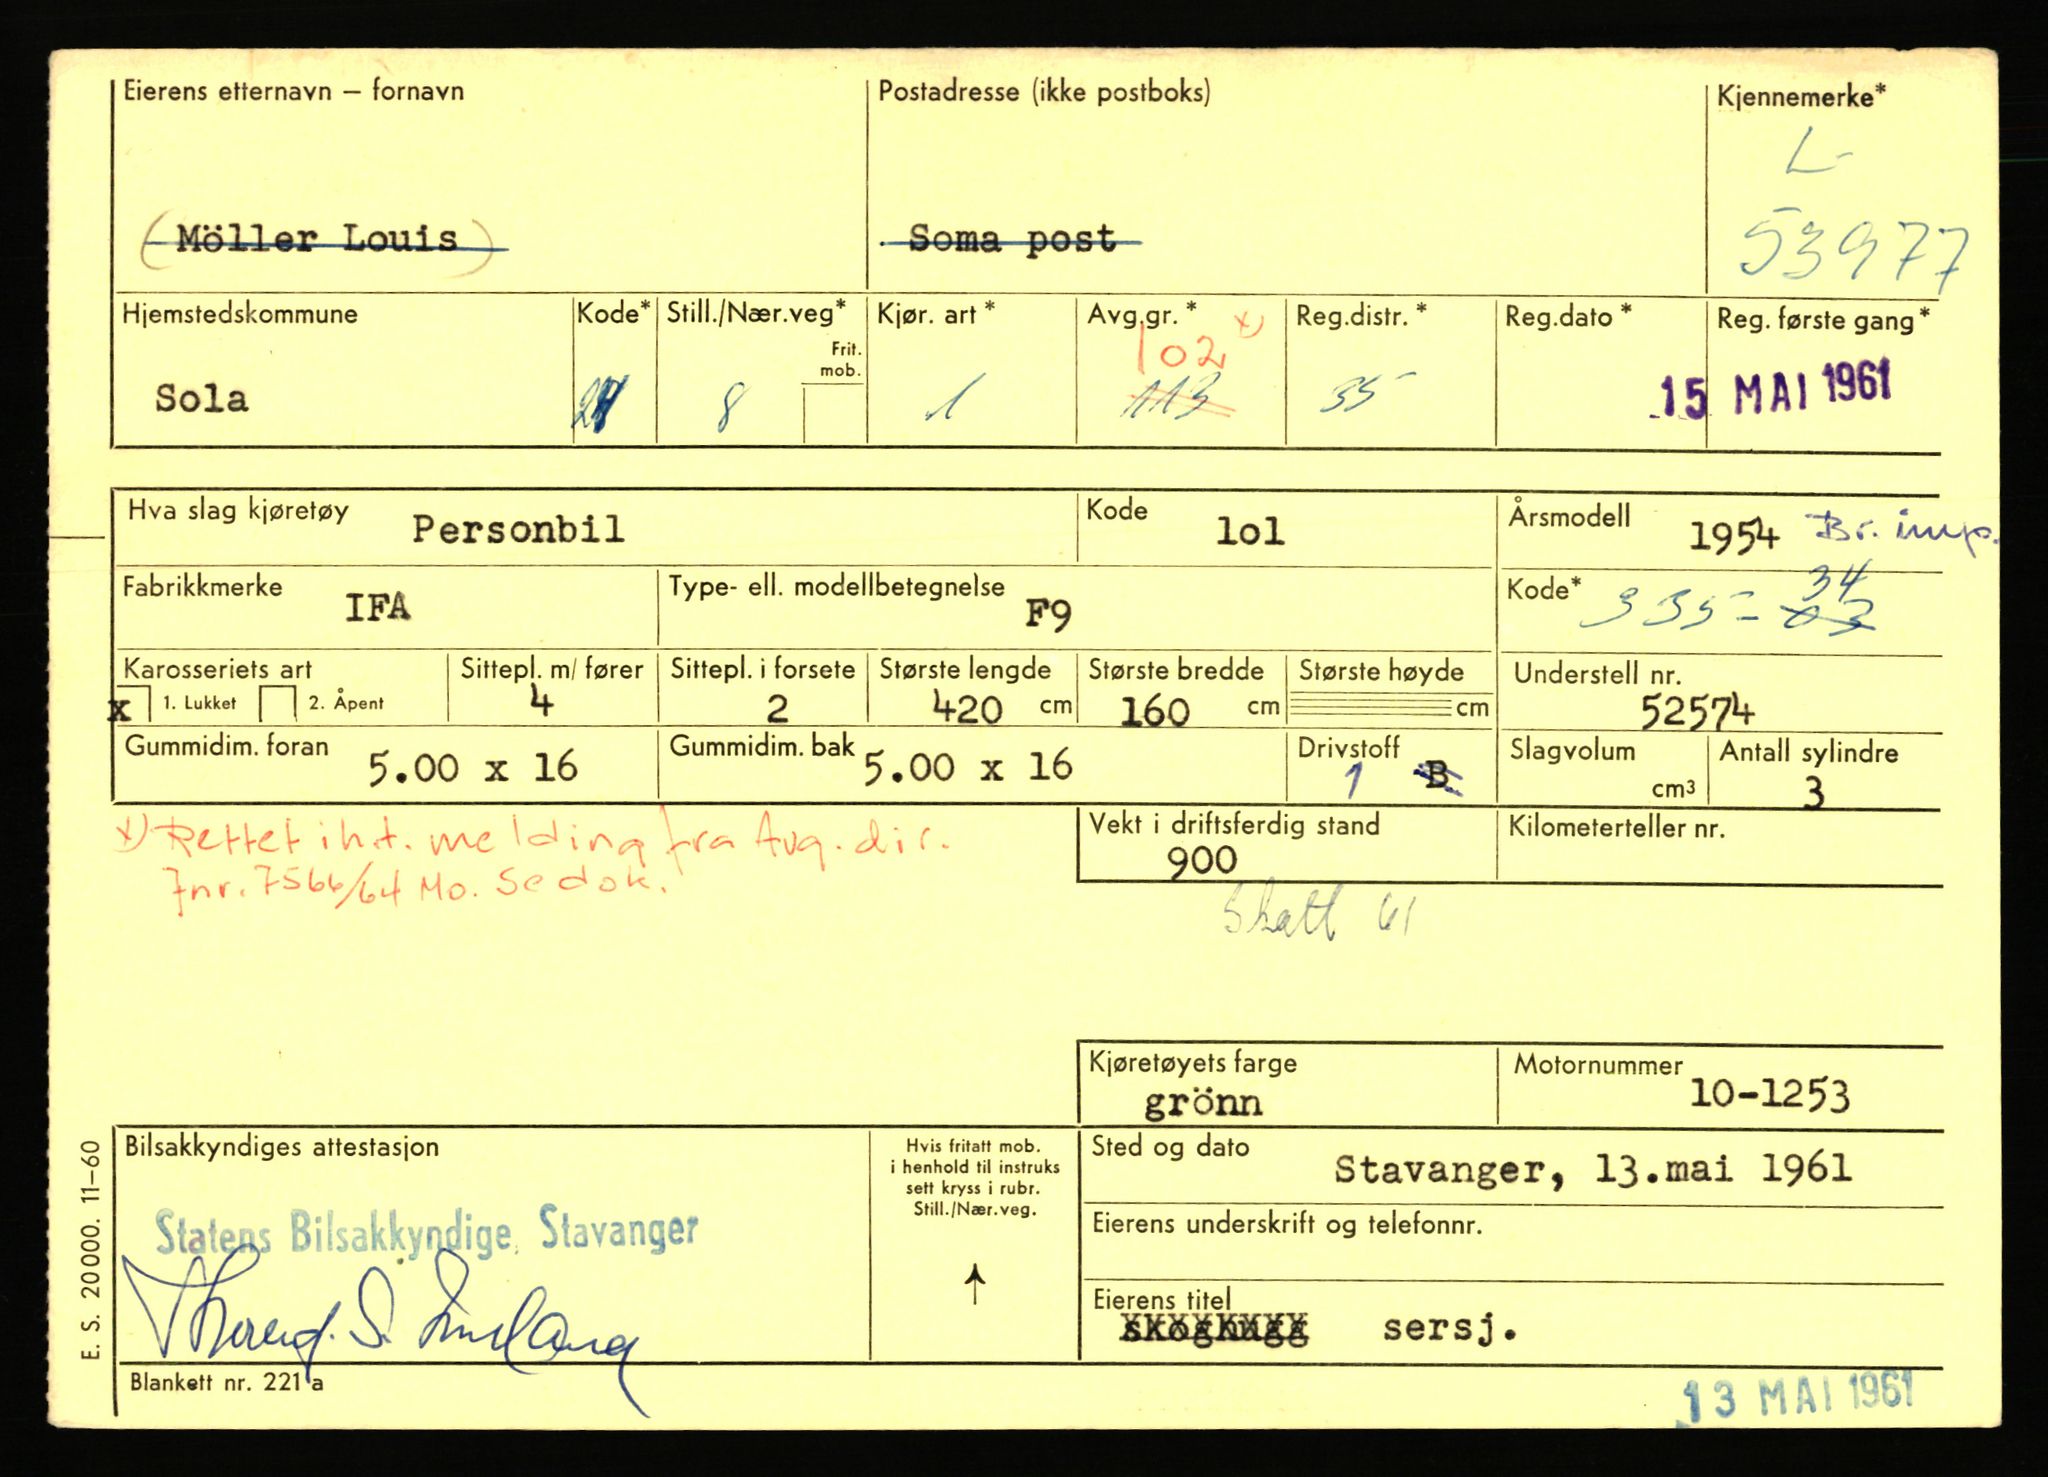 Eierens etternavn – fornavn
Postadresse (ikke postboks)
Kjennemerke*
L-
53977
(Möller Louis)
Soma post
Hjemstedskommune
Kode*
Still./Nær.veg*
Frit. mob.
Kjør. art *
Avg.gr. * x)
Reg.distr. *
Reg.dato *
Reg. første gang*
102
Sola
8
1
113
35
15 MAI 1961
Hva slag kjøretøy
Personbil
Kode
lol
Årsmodell
1954 Br. imp.
Fabrikkmerke
IFA
Type- ell. modellbetegnelse
F9
Kode*
34
335 - 03
Karosseriets art
x 1. Lukket
2. Åpent
Sittepl. m/ fører
4
Sittepl. i forsete
2
Største lengde
420 cm
Største bredde
160 cm
Største høyde
cm
Understell nr.
52574
Gummidim. foran
5.00 x 16
Gummidim. bak
5.00 x 16
Drivstoff
1 B
Slagvolum
cm³
Antall sylindre
3
x) Rettet iht. melding fra Avg. dir.
Jnr. 7566/64 Mo. Se dok.
Vekt i driftsferdig stand
900
Kilometerteller nr.
Skatt 61
Kjøretøyets farge
grönn
Motornummer
10-1253
Bilsakkyndiges attestasjon
Statens Bilsakkyndige, Stavanger
Hvis fritatt mob.
i henhold til instruks
sett kryss i rubr.
Still./Nær.veg.
↑
Sted og dato
Stavanger, 13.mai 1961
Eierens underskrift og telefonnr.
Eierens titel
skoghugg sersj.
E. S. 20000. 11–60
Blankett nr. 221 a
13 MAI 1961